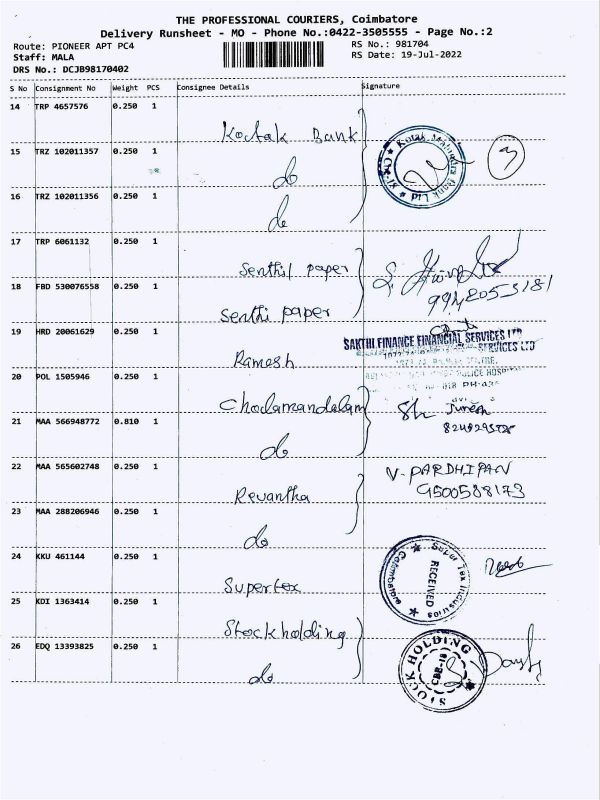 THE PROFESSIONAL COURIERS, Coimbatore
Delivery Runsheet - MO - Phone No.:0422-3505555 - Page No.:2
Route: PIONEER APT PC4
RS No.: 981704
Staff: MALA
RS Date: 19-Jul-2022
DRS No.: DCJB98170402
S No Consignment No Weight PCS Consignee Details Signature
14 TRP 4657576 0.250 1
Kotak Bank
Kotak Mahindra Bank Ltd
3
15 TRZ 102011357 0.250 1
do
16 TRZ 102011356 0.250 1
do
17 TRP 6061132 0.250 1
Senthil paper
18 FBD 530076558 0.250 1
Senthi paper
19 HRD 20061629 0.250 1
SAKTHI FINANCE FINANCIAL SERVICES LTD
Ramesh
20 POL 1505946 0.250 1
Cholamandalam
21 MAA 566948772 0.810 1
do
22 MAA 565602748 0.250 1
V-PARDHIPAN
9500588173
Revantha
23 MAA 288206946 0.250 1
do
24 KKU 461144 0.250 1
Super Tex Industries
RECEIVED
Coimbatore
Supertex
25 KDI 1363414 0.250 1
Stockholding
26 EDQ 13393825 0.250 1
STOCK HOLDING
CBE-18
do